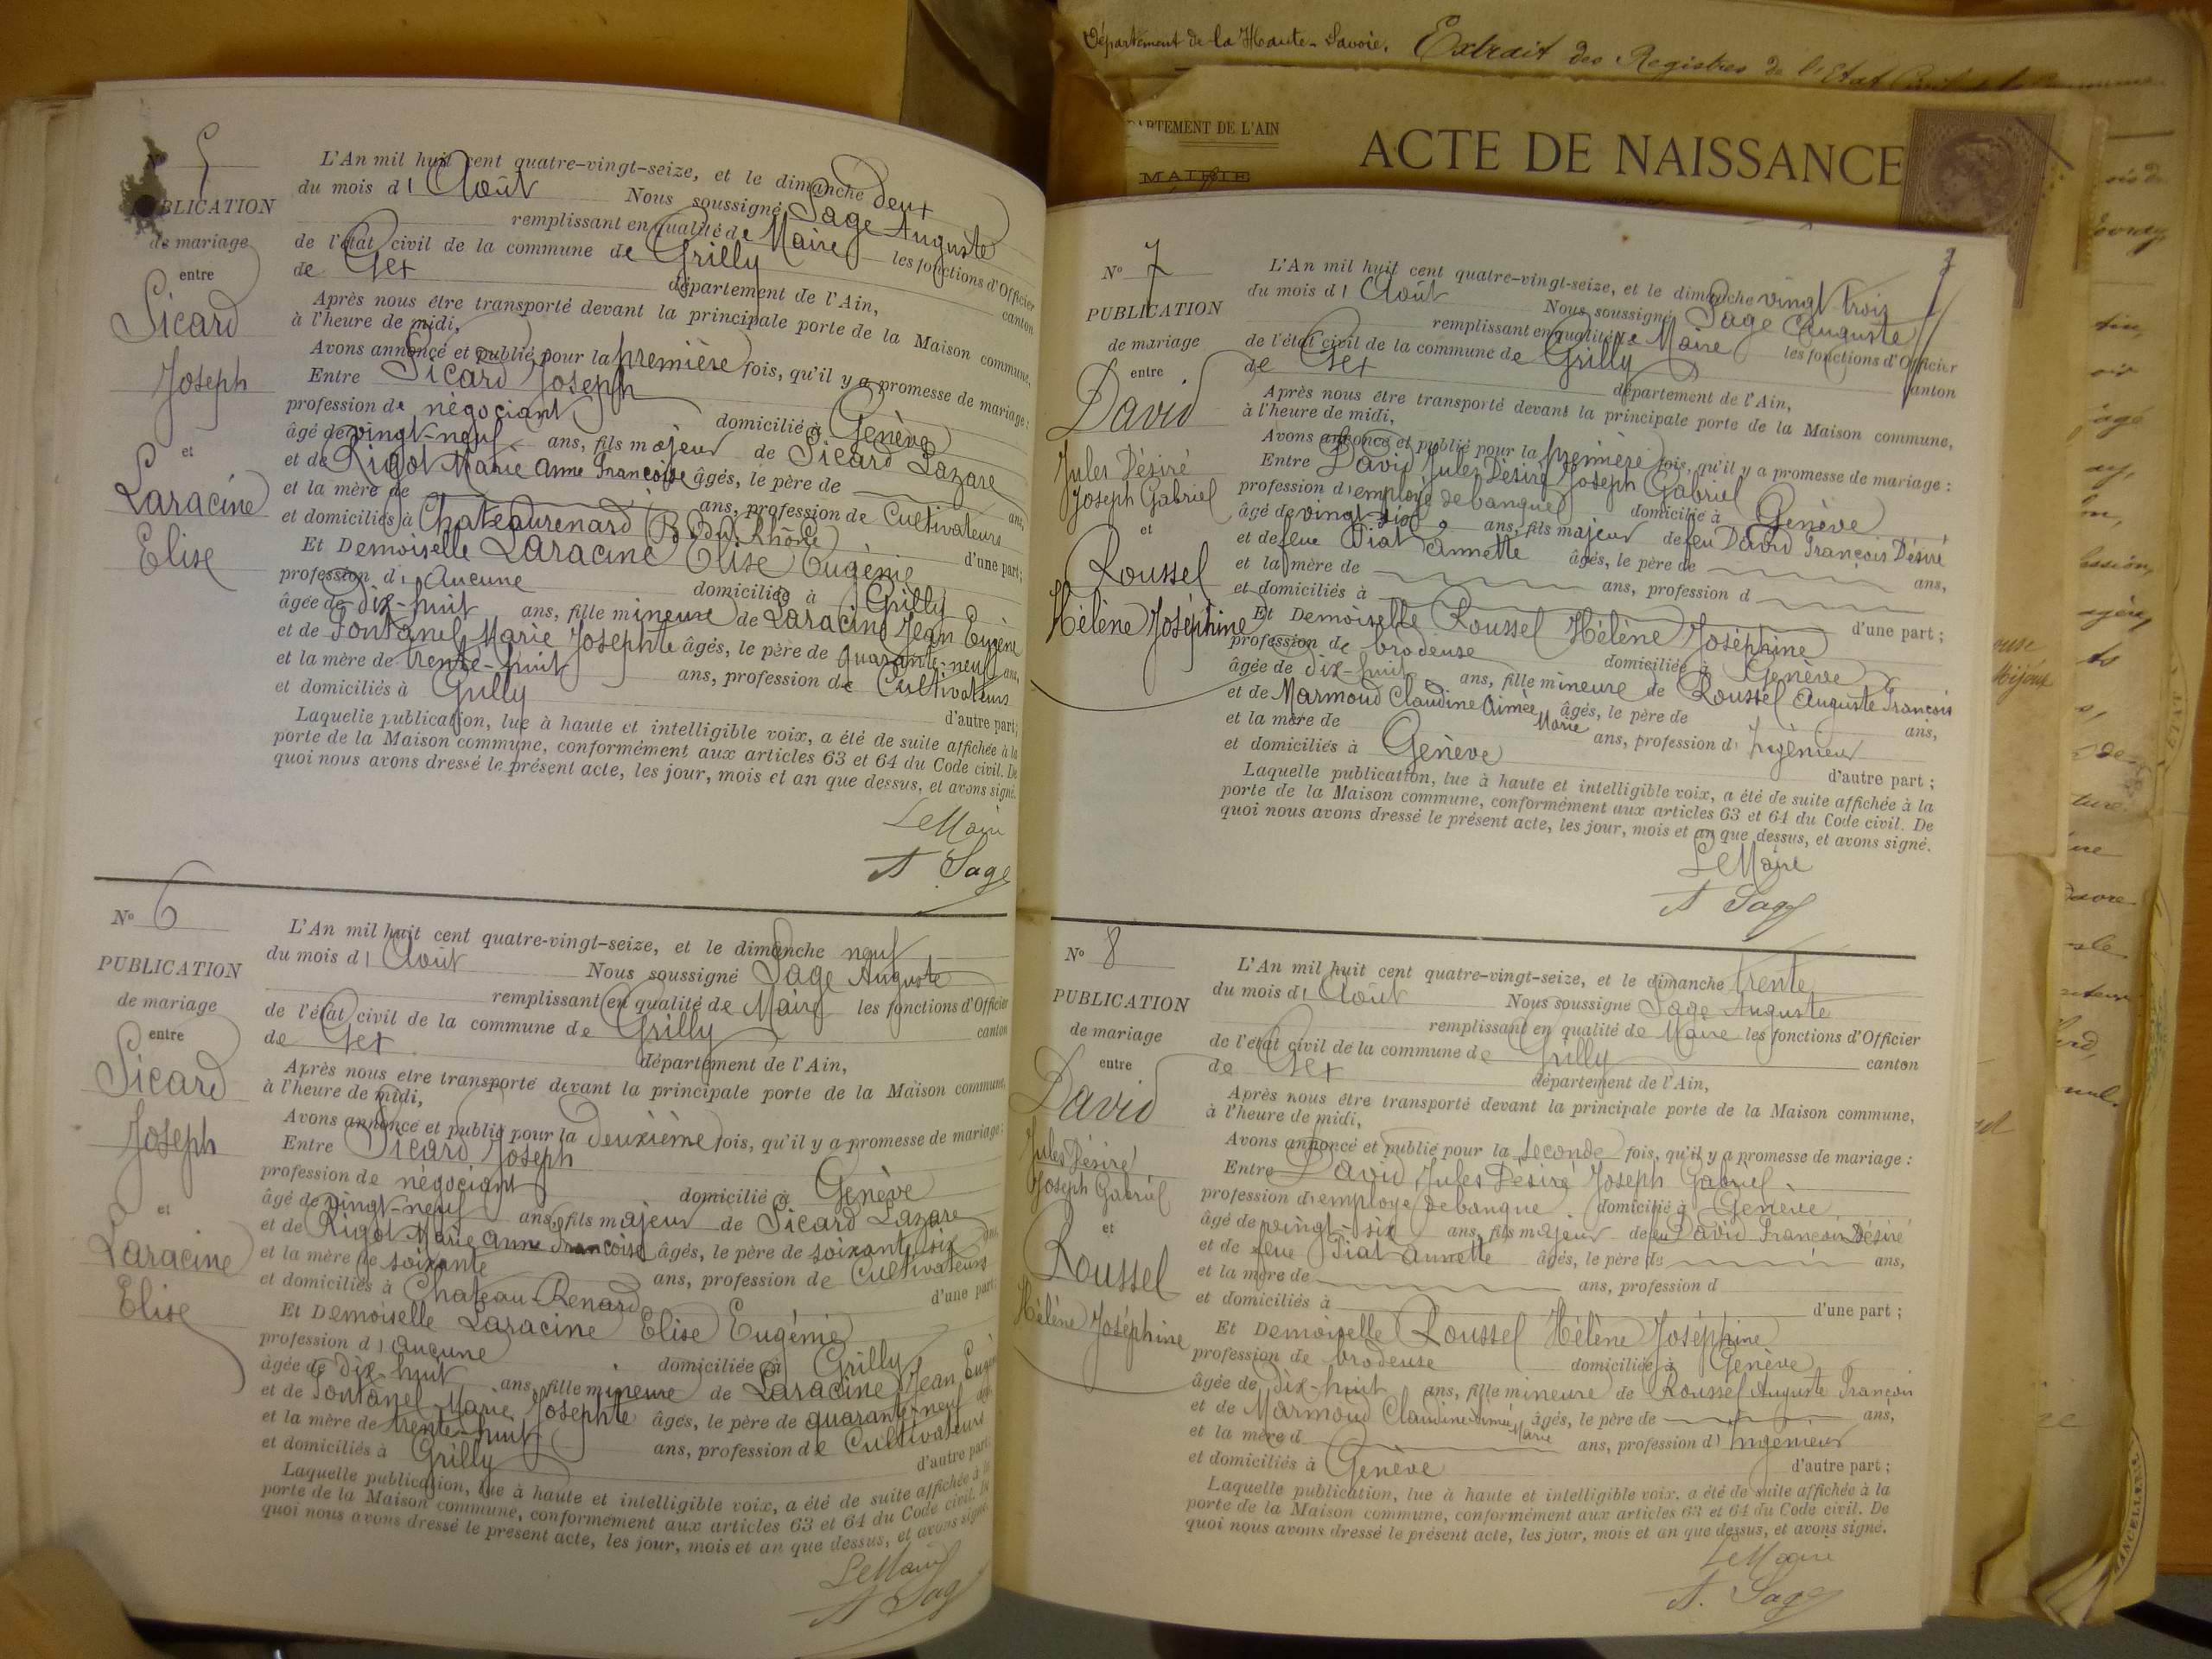 Département de la Haute-Savoie. Extrait des Registres de l'Etat Civil de la Commune
DEPARTEMENT DE L'AIN
ACTE DE NAISSANCE
MAIRIE
N° 5
PUBLICATION
de mariage
entre
Sicard
Joseph
et
Laracine
Elise
L'An mil huit cent quatre-vingt-seize, et le dimanche deux
du mois d' Août Nous soussigné Sage Auguste
remplissant en qualité de Maire les fonctions d'Officier
de l'état civil de la commune de Grilly canton
de Gex département de l'Ain,
Après nous être transporté devant la principale porte de la Maison commune,
à l'heure de midi,
Avons annoncé et publié pour la première fois, qu'il y a promesse de mariage :
Entre Sicard Joseph
profession de négociant domicilié à Genève
âgé de vingt-neuf ans, fils majeur de Sicard Lazare
et de Rigot Marie Anne Françoise âgés, le père de ans,
et la mère de ans, profession de Cultivateurs
et domiciliés à Chateaurenard (B. du Rhône) d'une part ;
Et Demoiselle Laracine Elise Eugénie
profession d' Aucune domiciliée à Grilly
âgée de dix-huit ans, fille mineure de Laracine Jean Eugène
et de Fontanel Marie Josephte âgés, le père de quarante-neuf ans,
et la mère de trente-huit ans, profession de Cultivateurs
et domiciliés à Grilly d'autre part ;
Laquelle publication, lue à haute et intelligible voix, a été de suite affichée à la
porte de la Maison commune, conformément aux articles 63 et 64 du Code civil. De
quoi nous avons dressé le présent acte, les jour, mois et an que dessus, et avons signé.
Le Maire
A Sage
N° 6
PUBLICATION
de mariage
entre
Sicard
Joseph
et
Laracine
Elise
L'An mil huit cent quatre-vingt-seize, et le dimanche neuf
du mois d' Août Nous soussigné Sage Auguste
remplissant en qualité de Maire les fonctions d'Officier
de l'état civil de la commune de Grilly canton
de Gex département de l'Ain,
Après nous être transporté devant la principale porte de la Maison commune,
à l'heure de midi,
Avons annoncé et publié pour la deuxième fois, qu'il y a promesse de mariage :
Entre Sicard Joseph
profession de négociant domicilié à Genève
âgé de vingt-neuf ans, fils majeur de Sicard Lazare
et de Rigot Marie Anne Françoise âgés, le père de soixante six ans,
et la mère de soixante ans, profession de Cultivateurs
et domiciliés à Chateau-Renard d'une part
Et Demoiselle Laracine Elise Eugénie
profession d' aucune domiciliée à Grilly
âgée de dix-huit ans, fille mineure de Laracine Jean Eugène
et de Fontanel Marie Josephte âgés, le père de quarante-neuf ans,
et la mère de trente-huit ans, profession de Cultivateurs
et domiciliés à Grilly d'autre part
Laquelle publication, lue à haute et intelligible voix, a été de suite affichée à la
porte de la Maison commune, conformément aux articles 63 et 64 du Code civil. De
quoi nous avons dressé le présent acte, les jour, mois et an que dessus, et avons signé.
Le Maire
A Sage
N° 7
PUBLICATION
de mariage
entre
David
Jules Désiré
Joseph Gabriel
et
Roussel
Hélène Joséphine
L'An mil huit cent quatre-vingt-seize, et le dimanche vingt trois
du mois d' Août Nous soussigné Sage Auguste
remplissant en qualité de Maire les fonctions d'Officier
de l'état civil de la commune de Grilly canton
de Gex département de l'Ain,
Après nous être transporté devant la principale porte de la Maison commune,
à l'heure de midi,
Avons annoncé et publié pour la première fois, qu'il y a promesse de mariage :
Entre David Jules Désiré Joseph Gabriel
profession d' employé de banque domicilié à Genève
âgé de vingt six ans, fils majeur de feu David François Désiré
et de feue Piat Annette âgés, le père de ans,
et la mère de ans, profession d
et domiciliés à d'une part ;
Et Demoiselle Roussel Hélène Joséphine
profession de brodeuse domiciliée à Genève
âgée de dix-huit ans, fille mineure de Roussel Auguste François
et de Marmoud Claudine Aimée Marie âgés, le père de ans,
et la mère de ans, profession d' Ingénieur
et domiciliés à Genève d'autre part ;
Laquelle publication, lue à haute et intelligible voix, a été de suite affichée à la
porte de la Maison commune, conformément aux articles 63 et 64 du Code civil. De
quoi nous avons dressé le présent acte, les jour, mois et an que dessus, et avons signé.
Le Maire
A Sage
N° 8
PUBLICATION
de mariage
entre
David
Jules Désiré
Joseph Gabriel
et
Roussel
Hélène Joséphine
L'An mil huit cent quatre-vingt-seize, et le dimanche trente
du mois d' Août Nous soussigné Sage Auguste
remplissant en qualité de Maire les fonctions d'Officier
de l'état civil de la commune de Grilly canton
de Gex département de l'Ain,
Après nous être transporté devant la principale porte de la Maison commune,
à l'heure de midi,
Avons annoncé et publié pour la seconde fois, qu'il y a promesse de mariage :
Entre David Jules Désiré Joseph Gabriel
profession d' employé de banque domicilié à Genève
âgé de vingt-six ans, fils majeur de feu David François Désiré
et de feue Piat Annette âgés, le père de ans,
et la mère de ans, profession d
et domiciliés à d'une part ;
Et Demoiselle Roussel Hélène Joséphine
profession de brodeuse domiciliée à Genève
âgée de dix-huit ans, fille mineure de Roussel Auguste François
et de Marmoud Claudine Aimée Marie âgés, le père de ans,
et la mère d ans, profession d' Ingénieur
et domiciliés à Genève d'autre part ;
Laquelle publication, lue à haute et intelligible voix, a été de suite affichée à la
porte de la Maison commune, conformément aux articles 63 et 64 du Code civil. De
quoi nous avons dressé le présent acte, les jour, mois et an que dessus, et avons signé.
Le Maire
A. Sage